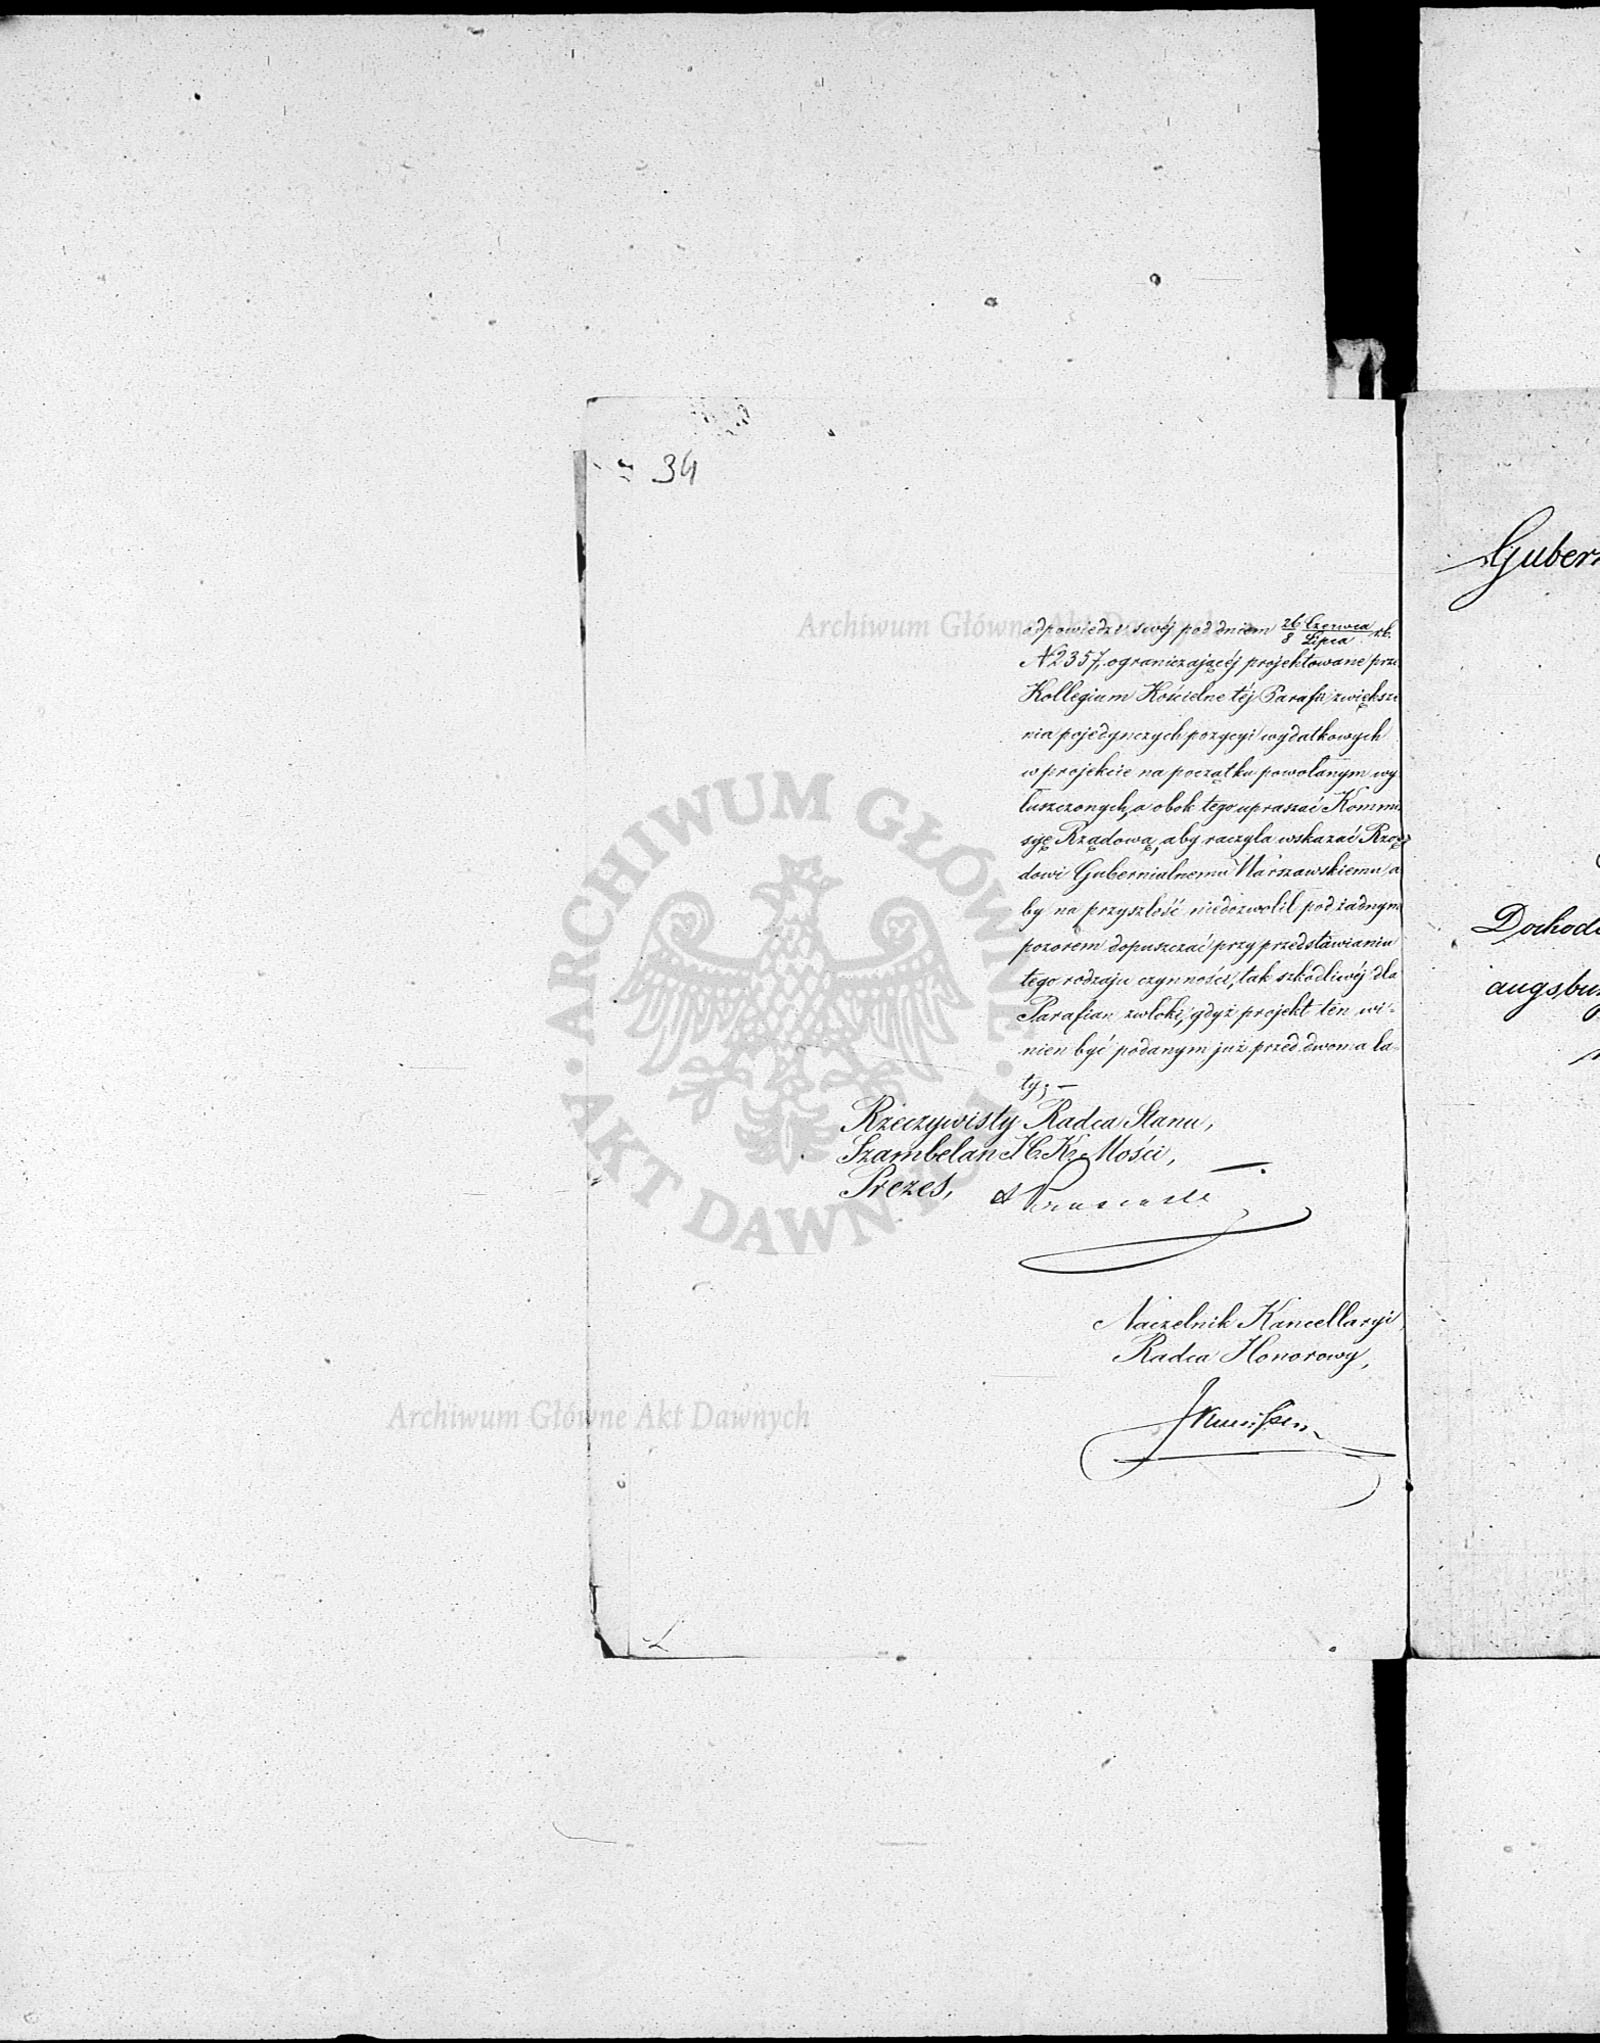 34
odpowiedzi swéj pod dniem 26 Czerwca / 8 Lipca r.b.
N 2357, ograniczającéj projektowane prze
Kollegium Kościelne téj Parafii zwiększe
nia pojedynczych pozycyi wydatkowych
w projekcie na początku powołanym wy
łuszczonych, a obok tego upraszać Kommis
syę Rządową, aby raczyła wskazać Rzą
dowi Gubernialnemu Warszawskiemu, a
by na przyszłość niedozwolił pod żadnym
pozorem dopuszczać przy przedstawianiu
tego rodzaju czynności, tak szkodliwéj dla
Parafian zwłoki, gdyż projekt ten wi-
nien być podanym już przed dwoma la-
ty; —
Rzeczywisty Radca Stanu,
Szambelan J. C. K. Mości,
Prezes,
Naczelnik Kancellaryi,
Radca Honorowy,
Gubern
Dochodó
augsbur
Archiwum Główne Akt Dawnych
ARCHIWUM GŁÓWNE AKT DAWNYCH
Archiwum Główne Akt Dawnych